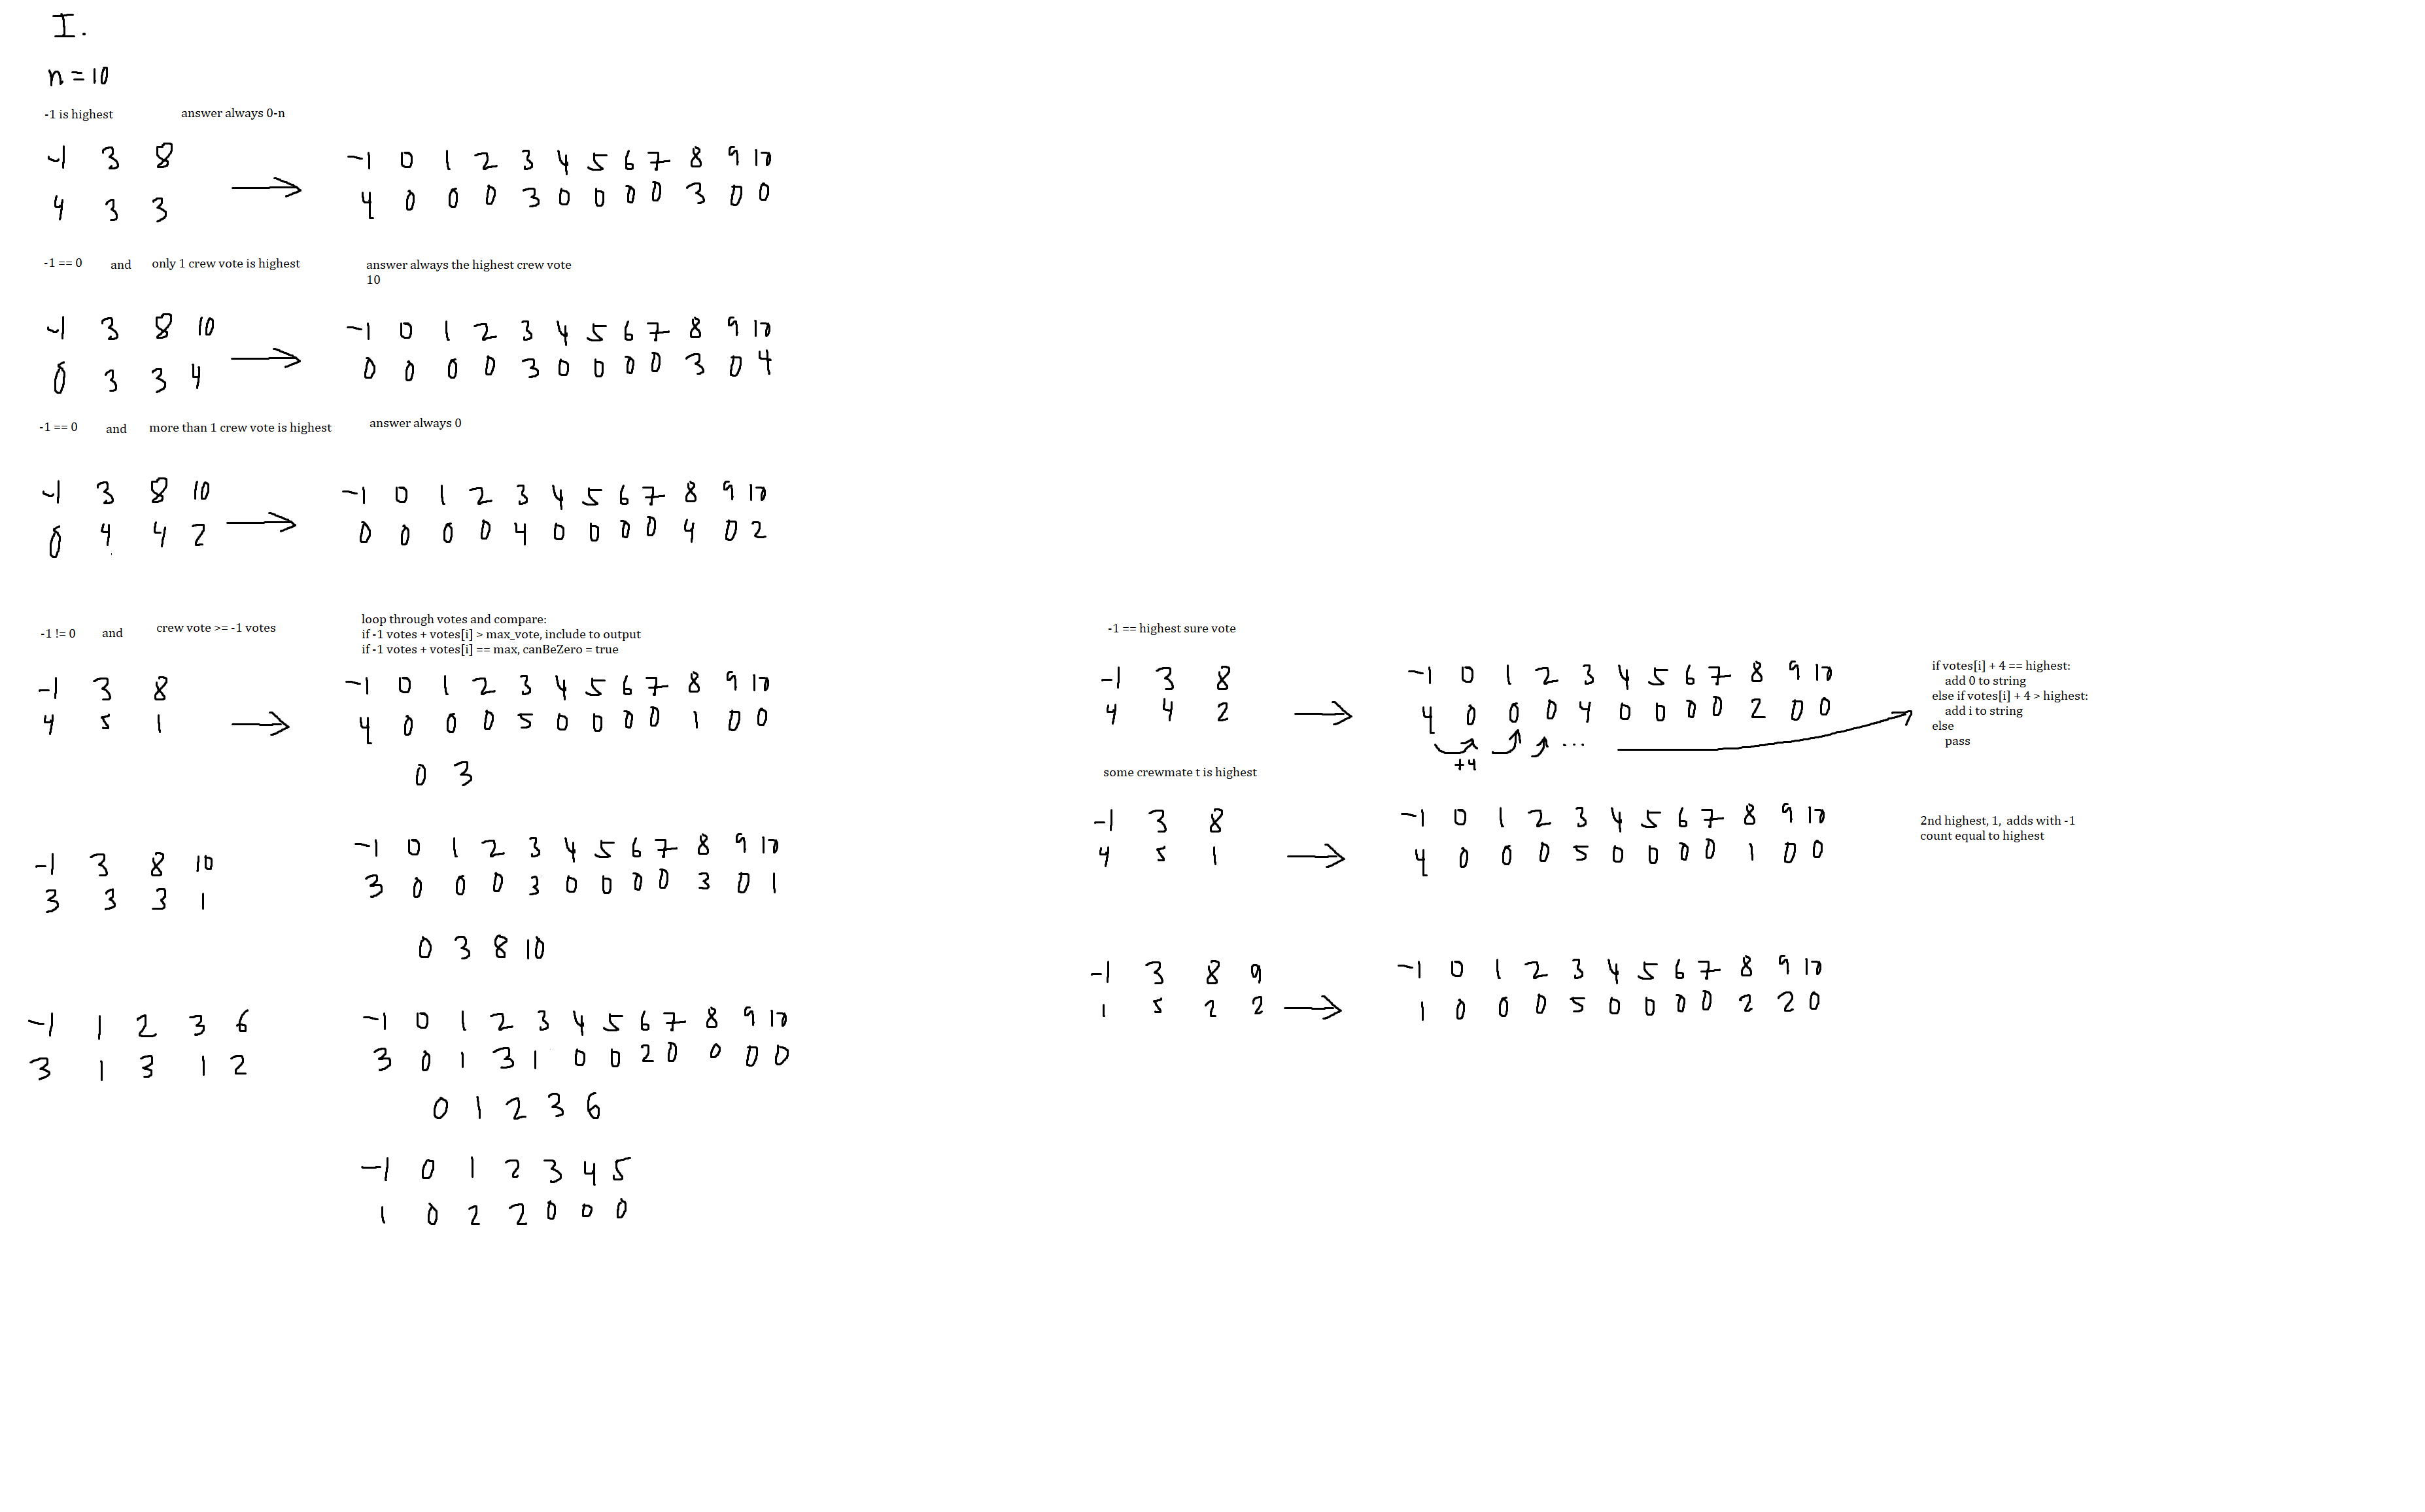 I.
n = 10
-1 is highest answer always 0-n
-1 3 8 -1 0 1 2 3 4 5 6 7 8 9 10
4 3 3 4 0 0 0 3 0 0 0 0 3 0 0
-1 == 0 and only 1 crew vote is highest answer always the highest crew vote
10
-1 3 8 10 -1 0 1 2 3 4 5 6 7 8 9 10
0 3 3 4 0 0 0 0 3 0 0 0 0 3 0 4
-1 == 0 and more than 1 crew vote is highest answer always 0
-1 3 8 10 -1 0 1 2 3 4 5 6 7 8 9 10
0 4 4 2 0 0 0 0 4 0 0 0 0 4 0 2
-1 != 0 and crew vote >= -1 votes
loop through votes and compare:
if -1 votes + votes[i] > max_vote, include to output
if -1 votes + votes[i] == max, canBeZero = true
-1 3 8 -1 0 1 2 3 4 5 6 7 8 9 10
4 5 1 4 0 0 0 5 0 0 0 0 1 0 0
0 3
-1 3 8 10 -1 0 1 2 3 4 5 6 7 8 9 10
3 3 3 1 3 0 0 0 3 0 0 0 0 3 0 1
0 3 8 10
-1 1 2 3 6 -1 0 1 2 3 4 5 6 7 8 9 10
3 1 3 1 2 3 0 1 3 1 0 0 2 0 0 0 0
0 1 2 3 6
-1 0 1 2 3 4 5
1 0 2 2 0 0 0
-1 == highest sure vote
-1 3 8 -1 0 1 2 3 4 5 6 7 8 9 10
4 4 2 4 0 0 0 4 0 0 0 0 2 0 0
+4 ...
if votes[i] + 4 == highest:
add 0 to string
else if votes[i] + 4 > highest:
add i to string
else
pass
some crewmate t is highest
-1 3 8 -1 0 1 2 3 4 5 6 7 8 9 10
4 5 1 4 0 0 0 5 0 0 0 0 1 0 0
2nd highest, 1, adds with -1
count equal to highest
-1 3 8 9 -1 0 1 2 3 4 5 6 7 8 9 10
1 5 2 2 1 0 0 0 5 0 0 0 0 2 2 0